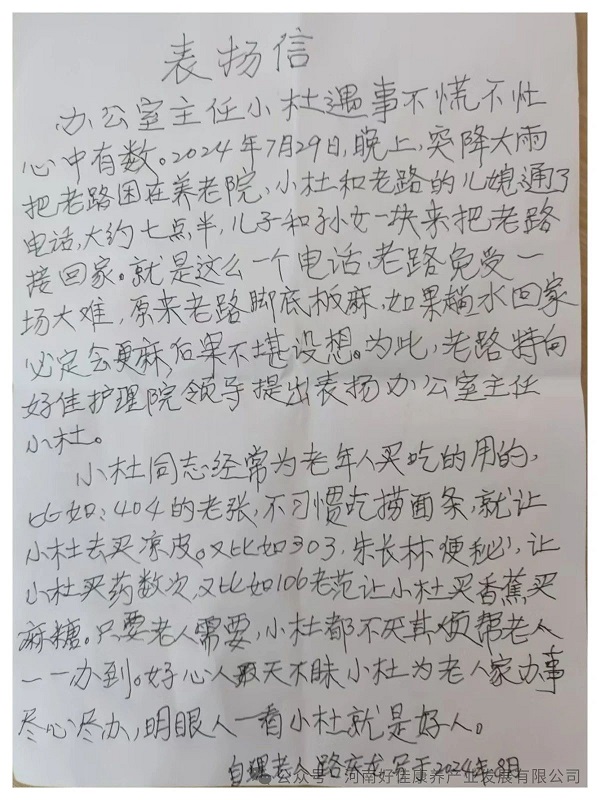 表扬信
办公室主任小杜遇事不慌不忙
心中有数。2024年7月29日,晚上,突降大雨
把老路困在养老院,小杜和老路的儿媳通了
电话,大约七点半,儿子和孙女一块来把老路
接回家。就是这么一个电话,老路免受一
场大难,原来老路脚底板麻,如果趟水回家
必定会更麻,后果不堪设想。为此,老路特向
好佳护理院领导提出表扬办公室主任
小杜。
小杜同志经常为老年人买吃的用的,
比如:404的老张,不习惯吃捞面条,就让
小杜去买凉皮。又比如303,朱长林便秘,让
小杜买药数次,又比如106老范让小杜买香蕉买
麻糖。只要老人需要,小杜都不厌其烦帮老人
一一办到。好心人 天不昧 小杜为老人家办事
尽心尽办,明眼人一看小杜就是好人。
自理老人 路庆 写于2024年8月
公众号·河南好佳康养产业发展有限公司